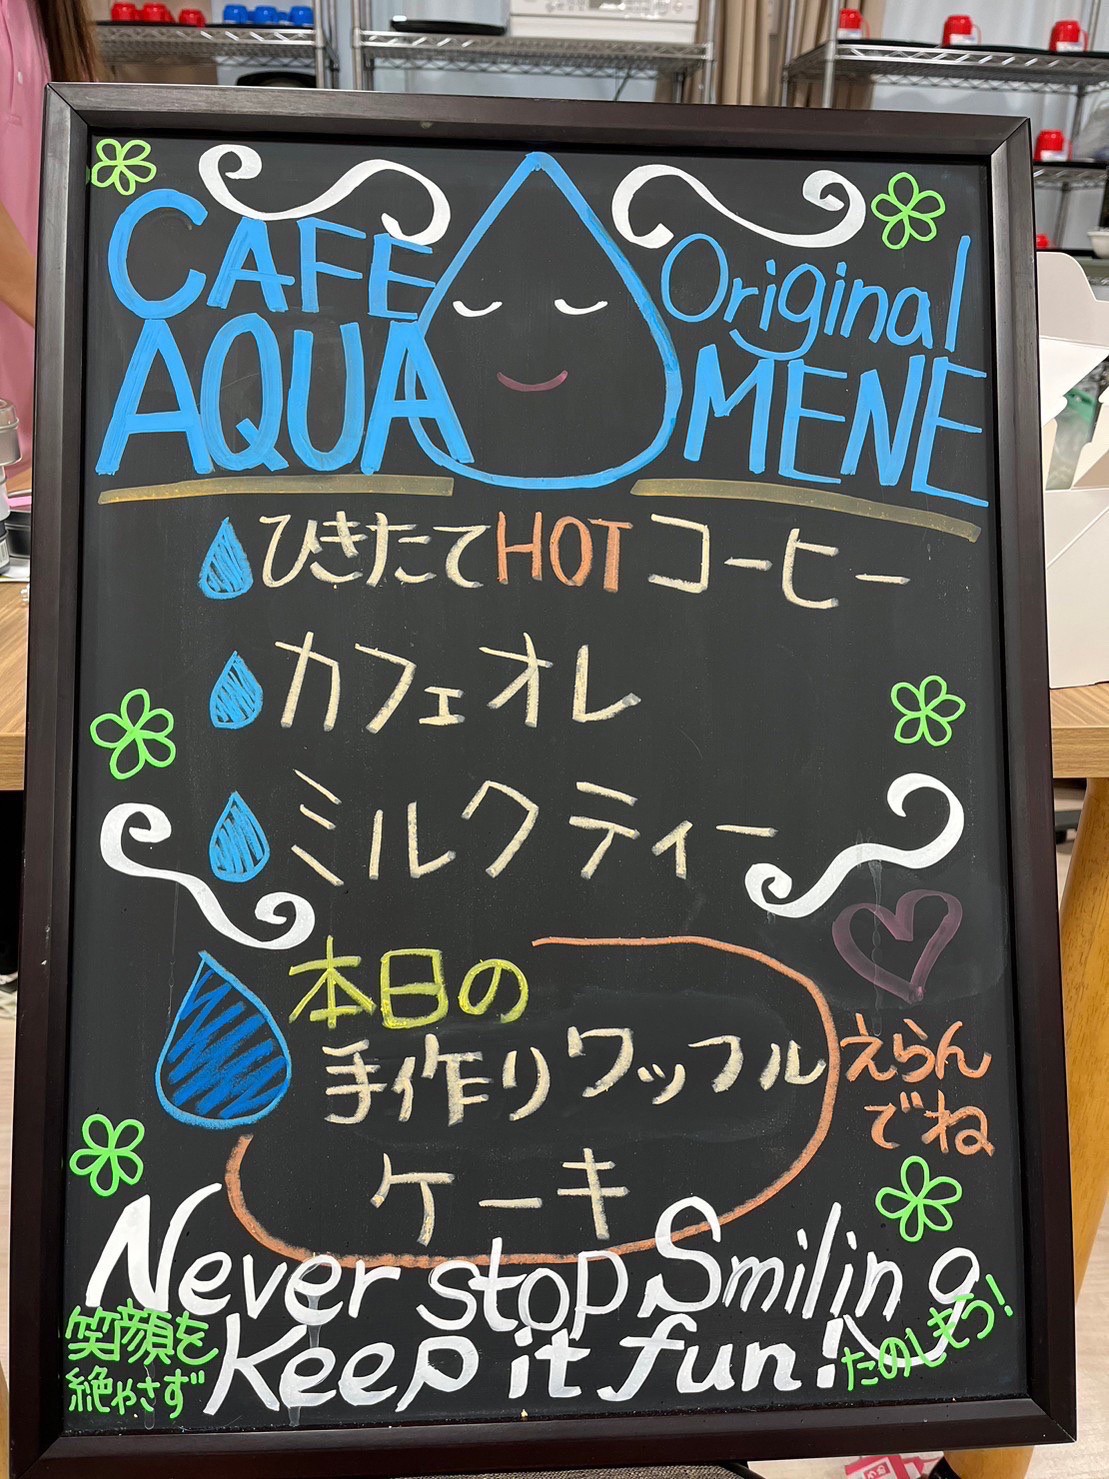 CAFE
AQUA
Original
MENE
ひきたてHOTコーヒー
カフェオレ
ミルクティー
本日の
手作りワッフル
ケーキ
えらん
でね
Never stop Smiling
Keep it fun!
笑顔を
絶やさず
たのしもう!